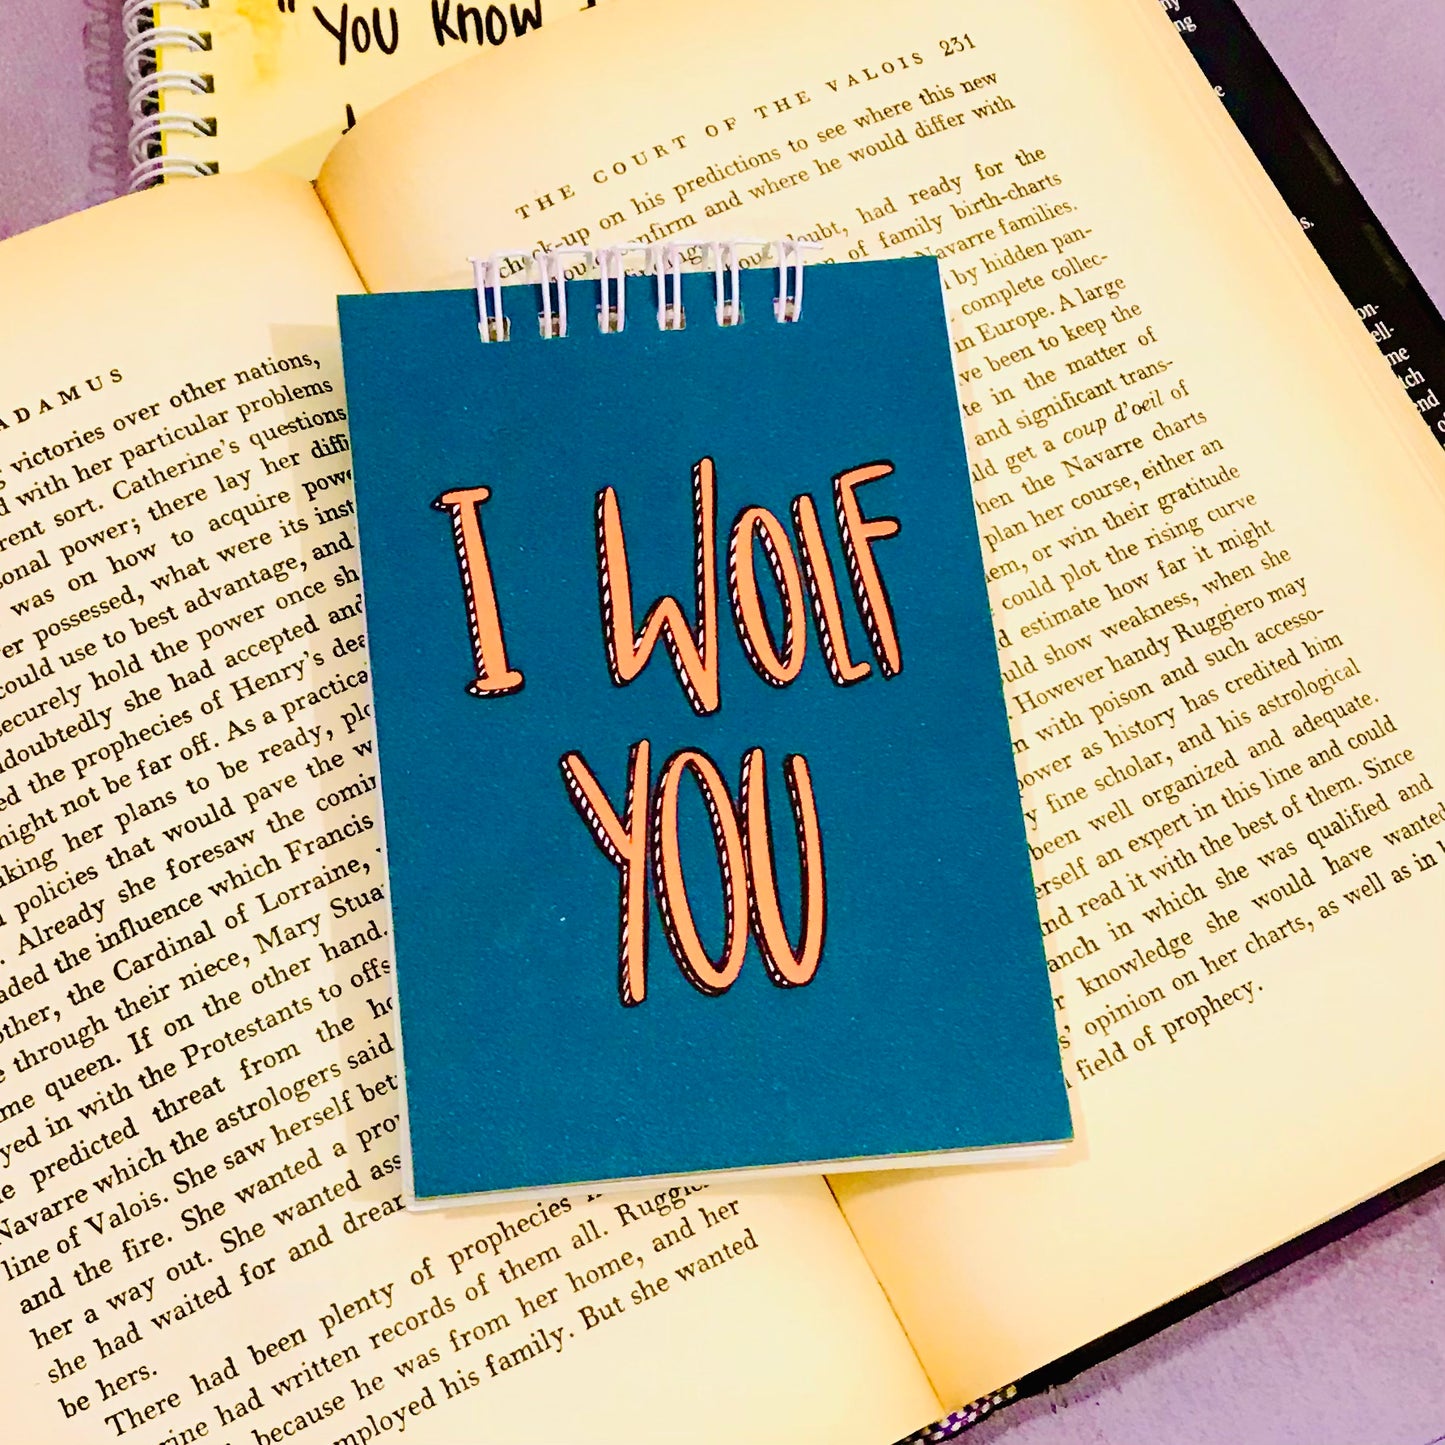 "You Know I
ADAMUS
victories over other nations,
with her particular problems
rent sort. Catherine's questions
sonal power; there lay her
was on how to acquire
er possessed, what were its
could use to best advantage, and
securely hold the power once
doubtedly she had accepted and
ed the prophecies of Henry's
might not be far off. As a
aking her plans to be ready,
policies that would pave the
. Already she foresaw the
aded the influence which Francis
other, the Cardinal of Lorraine,
through their niece, Mary
me queen. If on the other hand.
yed in with the Protestants to
e predicted threat from the
Navarre which the astrologers said
line of Valois. She saw herself
and the fire. She wanted a
her a way out. She wanted
she had waited for and
be hers.
There had been plenty of prophecies
rine had written records of them all.
because he was from her home, and her
mployed his family. But she wanted
THE COURT OF THE VALOIS 231
check-up on his predictions to see where this new
confirm and where he would differ with
doubt, had ready for the
of family birth-charts
Navarre families.
by hidden pan-
complete collec-
in Europe. A large
ve been to keep the
te in the matter of
and significant trans-
ld get a coup d'oeil of
hen the Navarre charts
plan her course, either an
em, or win their gratitude
could plot the rising curve
d estimate how far it might
uld show weakness, when she
. However handy Ruggiero may
n with poison and such accesso-
power as history has credited him
y fine scholar, and his astrological
been well organized and adequate.
erself an expert in this line and could
and read it with the best of them. Since
anch in which she was qualified and
r knowledge she would have wanted
s' opinion on her charts, as well as in
field of prophecy.
I WOLF
YOU